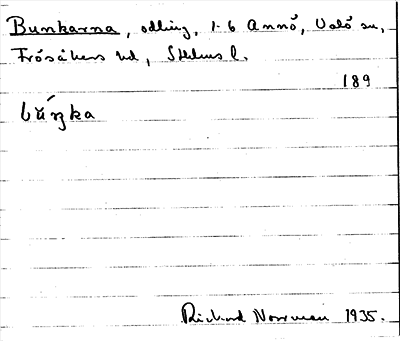 Bunkarna, odling, 1-6 Annö, Valö sn,
Frösåkers hd, Sthlms l.
189
bŭ́ŋka
Richard Norrman 1935.